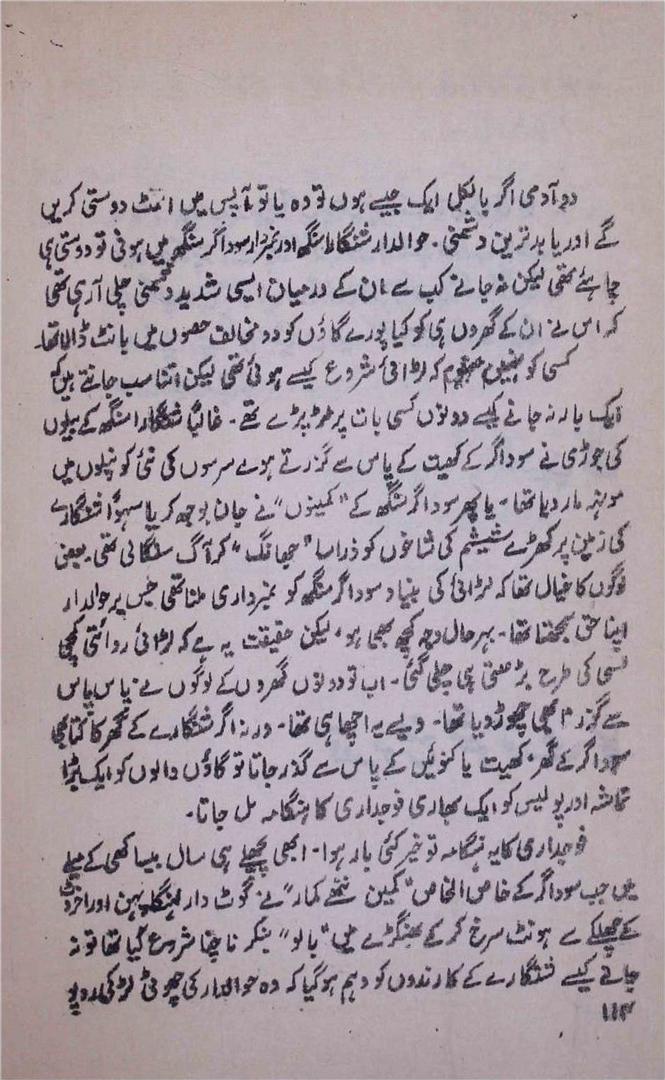 دو آدمی اگر بالکل ایک جیسے ہوں تو وہ یا تو آپس میں انمٹ دوستی کریں
گے اور یا بدترین دشمنی۔ حوالدار شنگارا سنگھ اور نمبردار سوداگر سنگھ میں ہونی تو دوستی ہی
چاہئے تھی لیکن نہ جانے کب سے ان کے درمیان ایسی شدید دشمنی چلی آ رہی تھی
کہ اس نے ان کے گھروں ہی کو کیا پورے گاؤں کو دو مخالف حصوں میں بانٹ ڈالا تھا۔
کسی کو نہیں معلوم کہ لڑائی شروع کیسے ہوئی تھی لیکن اتنا سب جانتے ہیں کہ
ایک بار نہ جانے کیسے دونوں کسی بات پر لڑ پڑے تھے۔ غالباً شنگارا سنگھ کے بیلوں
کی جوڑی نے سوداگر کے کھیت کے پاس سے گزرتے ہوے سرسوں کی نئی کونپلوں میں
مونہہ مار دیا تھا۔ یا پھر سوداگر سنگھ کے "کمینوں" نے جان بوجھ کر یا سہواً شنگارے
کی زمین پر کھڑے شیشم کی شاخوں کو ذرا سا "جھانگ" کر آگ سلگائی تھی۔ بعض
لوگوں کا خیال تھا کہ لڑائی کی بنیاد سوداگر سنگھ کو نمبرداری ملنا تھی جس پر حوالدار
اپنا حق سمجھتا تھا۔ بہرحال وجہ کچھ بھی ہو، لیکن حقیقت یہ ہے کہ لڑائی روائتی کچی
لسی کی طرح بڑھتی ہی چلی گئی۔ اب تو دونوں گھروں کے لوگوں نے پاس پاس
سے گزرنا بھی چھوڑ دیا تھا۔ ویسے یہ اچھا ہی تھا۔ ورنہ اگر شنگارے کے گھر کا کتا بھی
سوداگر کے گھر، کھیت یا کنوئیں کے پاس سے گذر جاتا تو گاؤں والوں کو ایک بڑا
تماشہ اور پولیس کو ایک بھاری فوجداری کا ہنگامہ مل جاتا۔
فوجداری کا یہ ہنگامہ تو خیر کئی بار ہوا۔ ابھی پچھلے ہی سال بیساکھی کے میلے
میں جب سوداگر کے خاص الخاص "کمین ننھے کمار" نے گوٹ دار لہنگا پہن اور اخروٹ
کے چھلکے سے ہونٹ سرخ کر کے بھنگڑے میں "بالو" بنکر ناچنا شروع کیا تھا تو نہ
جانے کیسے شنگارے کے کارندوں کو وہم ہو گیا کہ وہ حوالدار کی چھوٹی لڑکی روپو
۱۱۳